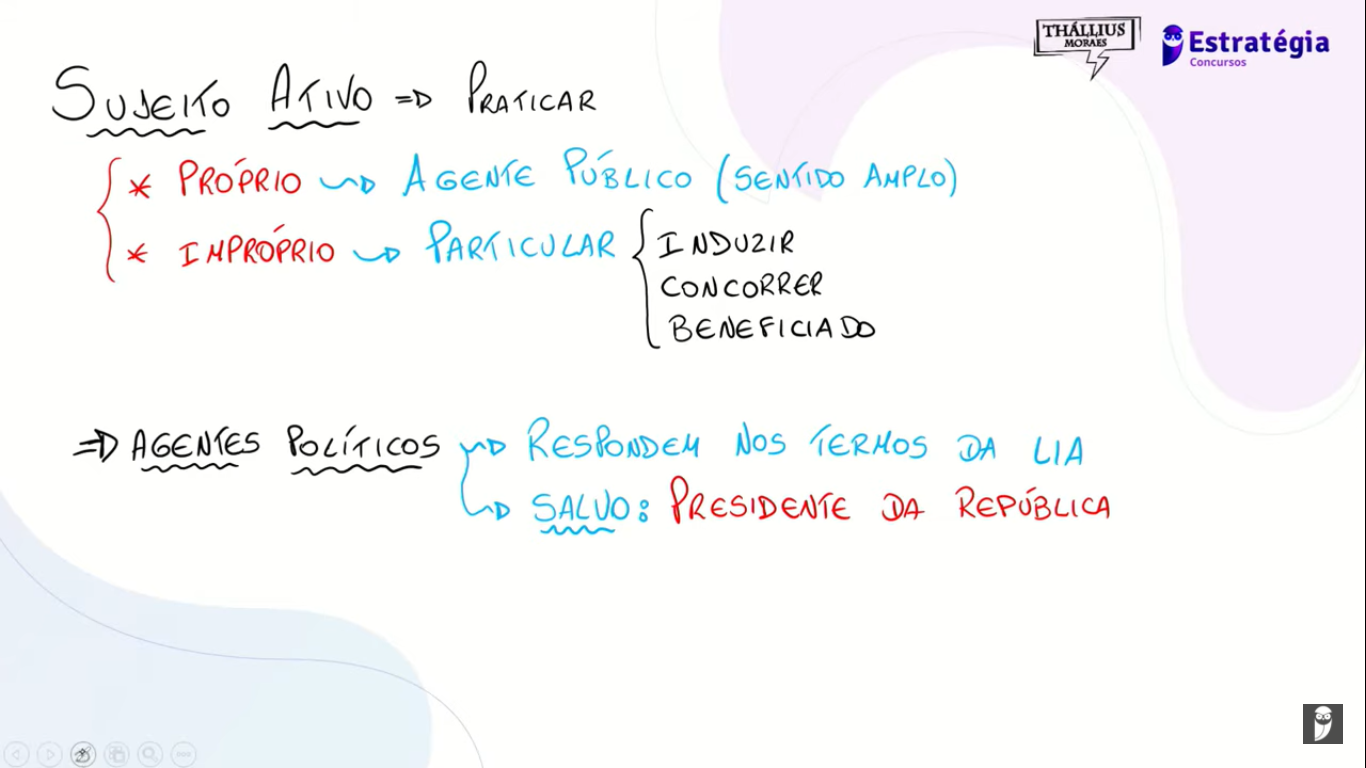 THÁLLIUS
MORAES
Estratégia
Concursos
SUJEITO ATIVO => PRATICAR
* PRÓPRIO → AGENTE PÚBLICO (SENTIDO AMPLO)
* IMPRÓPRIO → PARTICULAR { INDUZIR
CONCORRER
BENEFICIADO
=> AGENTES POLÍTICOS → RESPONDEM NOS TERMOS DA LIA
→ SALVO: PRESIDENTE DA REPÚBLICA